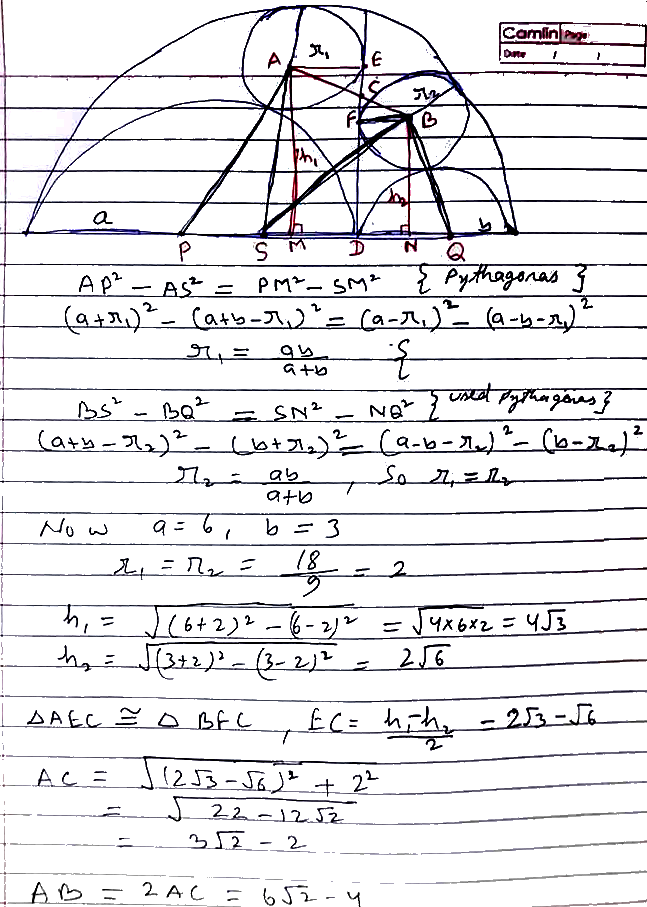 Camlin Page
Date / /
A r₁ E
C r₂
F B
h₁
h₂
a b
P S M D N Q
AP² – AS² = PM² – SM² { Pythagoras }
(a+r₁)² – (a+b–r₁)² = (a–r₁)² – (a–b–r₁)²
r₁ = ab/a+b {
BS² – BQ² = SN² – NQ² } used Pythagoras }
(a+b–r₂)² – (b+r₂)² = (a–b–r₂)² – (b–r₂)²
r₂ = ab/a+b , So r₁ = r₂
Now a = 6, b = 3
r₁ = r₂ = 18/9 = 2
h₁ = √(6+2)² – (6–2)² = √4×6×2 = 4√3
h₂ = √(3+2)² – (3–2)² = 2√6
ΔAEC ≅ Δ BFC , EC = h₁–h₂/2 = 2√3–√6
AC = √(2√3–√6)² + 2²
= √22 – 12√2
= 3√2 – 2
AB = 2AC = 6√2 – 4